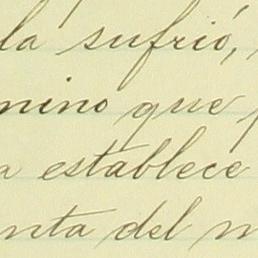 la sufrió,
mino que
a establece
nta del